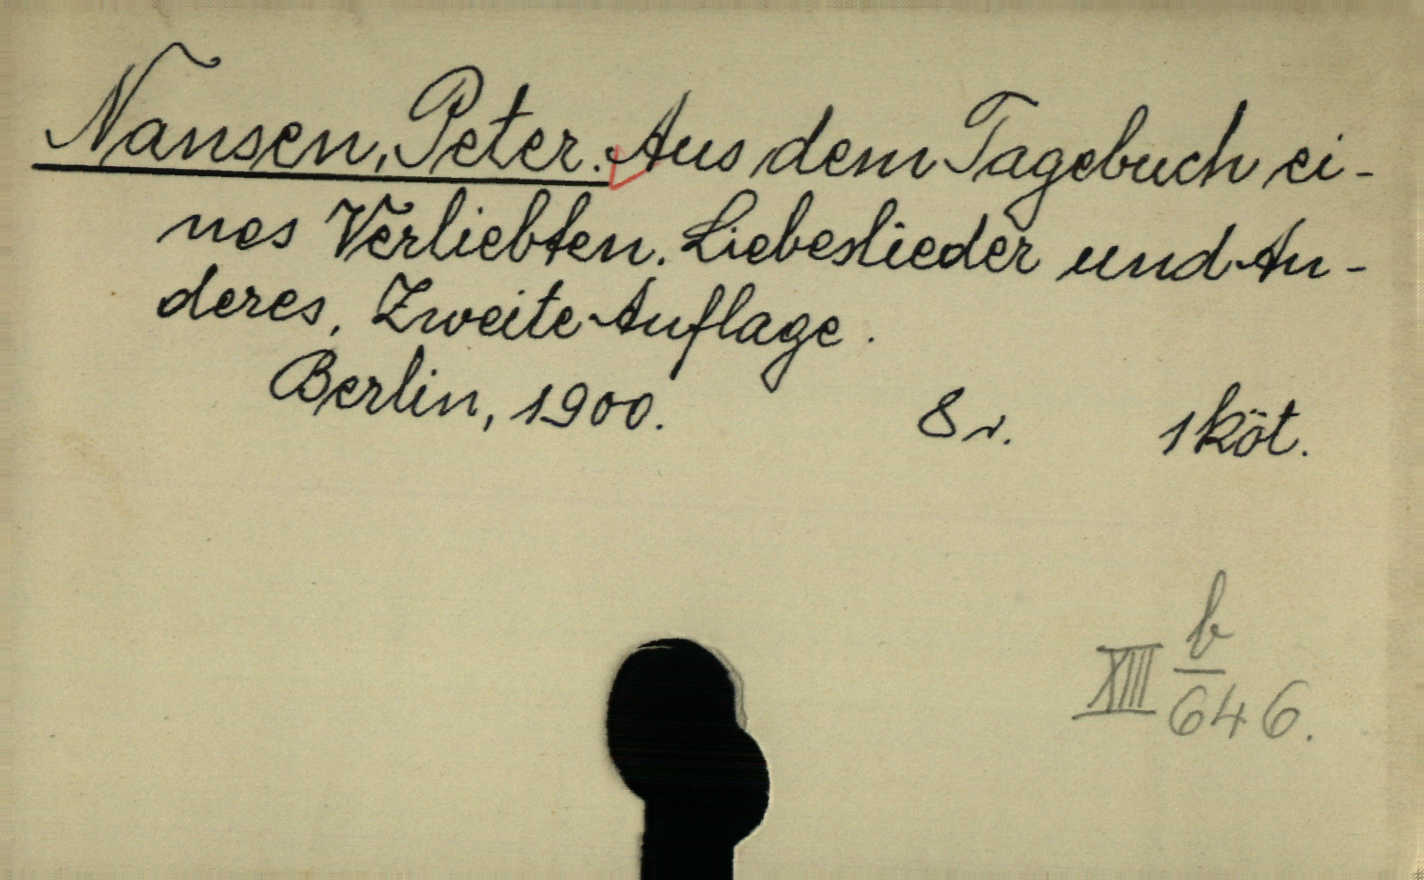 Nansen, Peter. Aus dem Tagebuch ei-
nes Verliebten. Liebeslieder und An-
deres, Zweite Auflage.
Berlin, 1900. 8r. 1 köt.
XIII b/646.